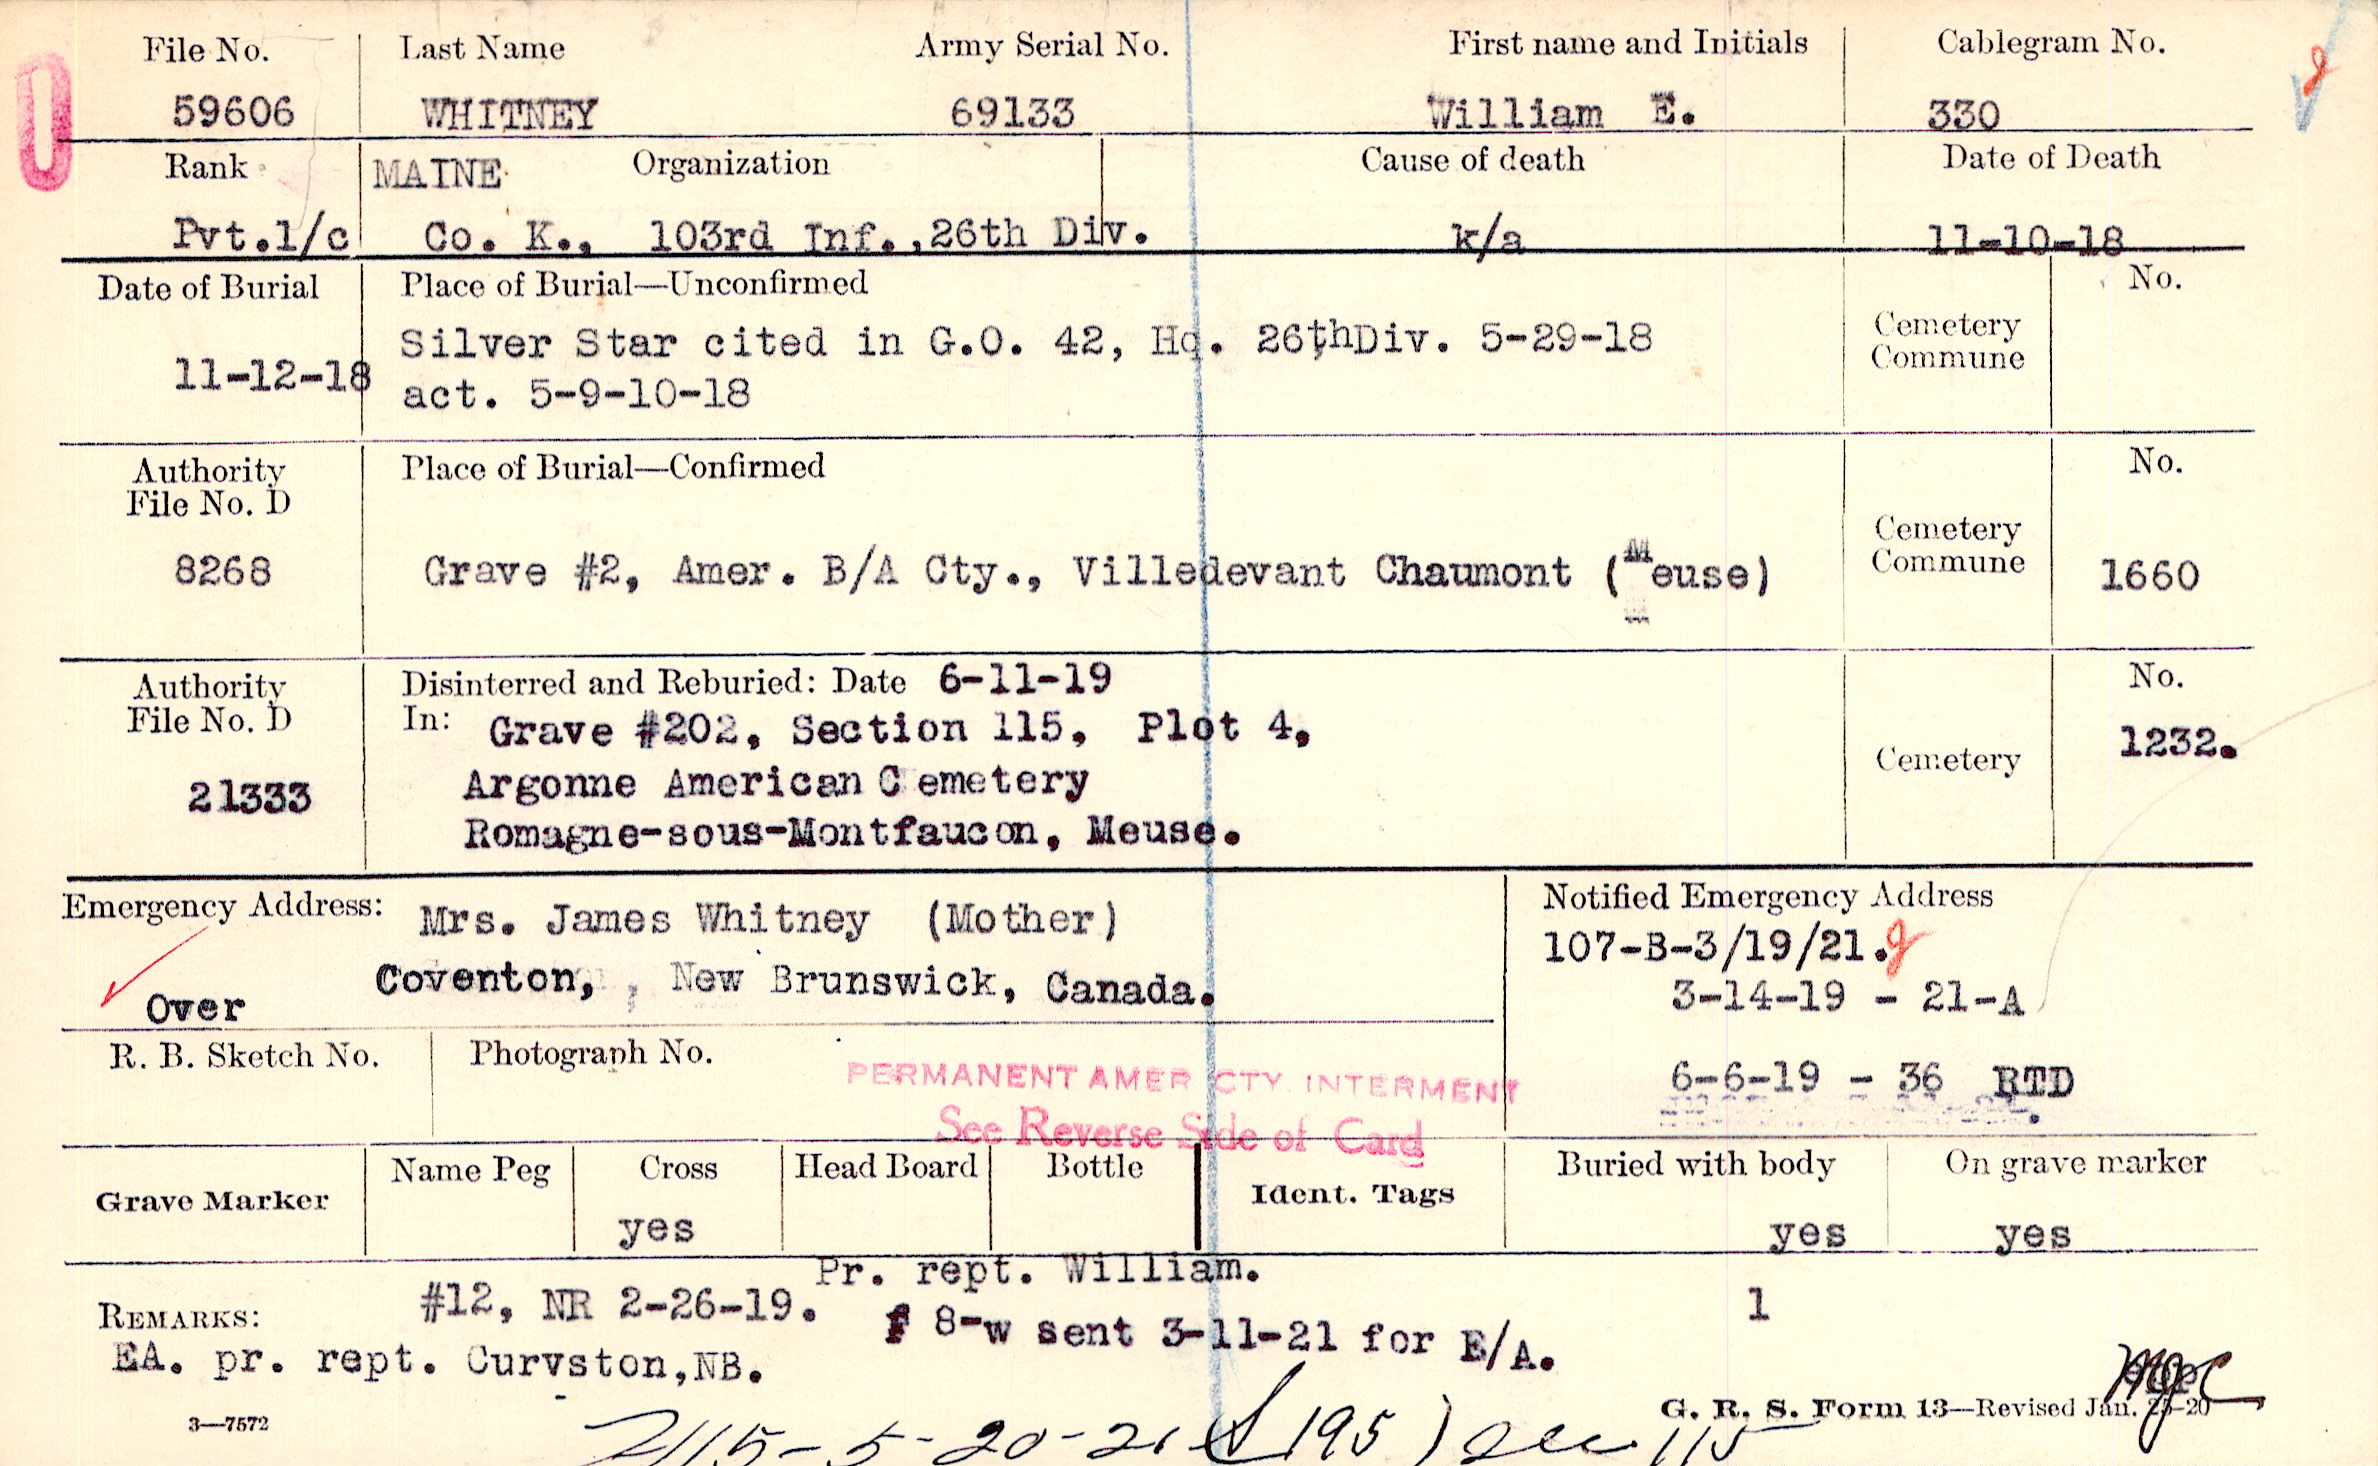 File No. Last Name Army Serial No. First name and Initials Cablegram No.
59606 WHITNEY 69133 William E. 330
Rank MAINE Organization Cause of death Date of Death
Pvt.1/c Co. K., 103rd Inf.,26th Div. k/a 11-10-18
Date of Burial Place of Burial—Unconfirmed No.
Silver Star cited in G.O. 42, Hq. 26thDiv. 5-29-18 Cemetery
Commune
11-12-18 act. 5-9-10-18
Authority Place of Burial—Confirmed No.
File No. D
Cemetery
Commune
8268 Grave #2, Amer. B/A Cty., Villedevant Chaumont (Meuse) 1660
Authority Disinterred and Reburied: Date 6-11-19 No.
File No. D In: Grave #202, Section 115, Plot 4, 1232.
21333 Argonne American Cemetery Cemetery
Romagne-sous-Montfaucon, Meuse.
Emergency Address: Mrs. James Whitney (Mother) Notified Emergency Address
107-B-3/19/21.
Over Coventon, , New Brunswick, Canada. 3-14-19 - 21-A
R. B. Sketch No. Photograph No. 6-6-19 - 36 RTD
PERMANENT AMER CTY. INTERMENT
See Reverse Side of Card
Grave Marker Name Peg Cross Head Board Bottle Ident. Tags Buried with body On grave marker
yes yes yes
Pr. rept. William.
REMARKS: #12, NR 2-26-19. 8-w sent 3-11-21 for E/A. 1
EA. pr. rept. Curvston,NB.
3—7572 G. R. S. Form 13—Revised Jan. 25-20
5-20-21 (195) Sec 115